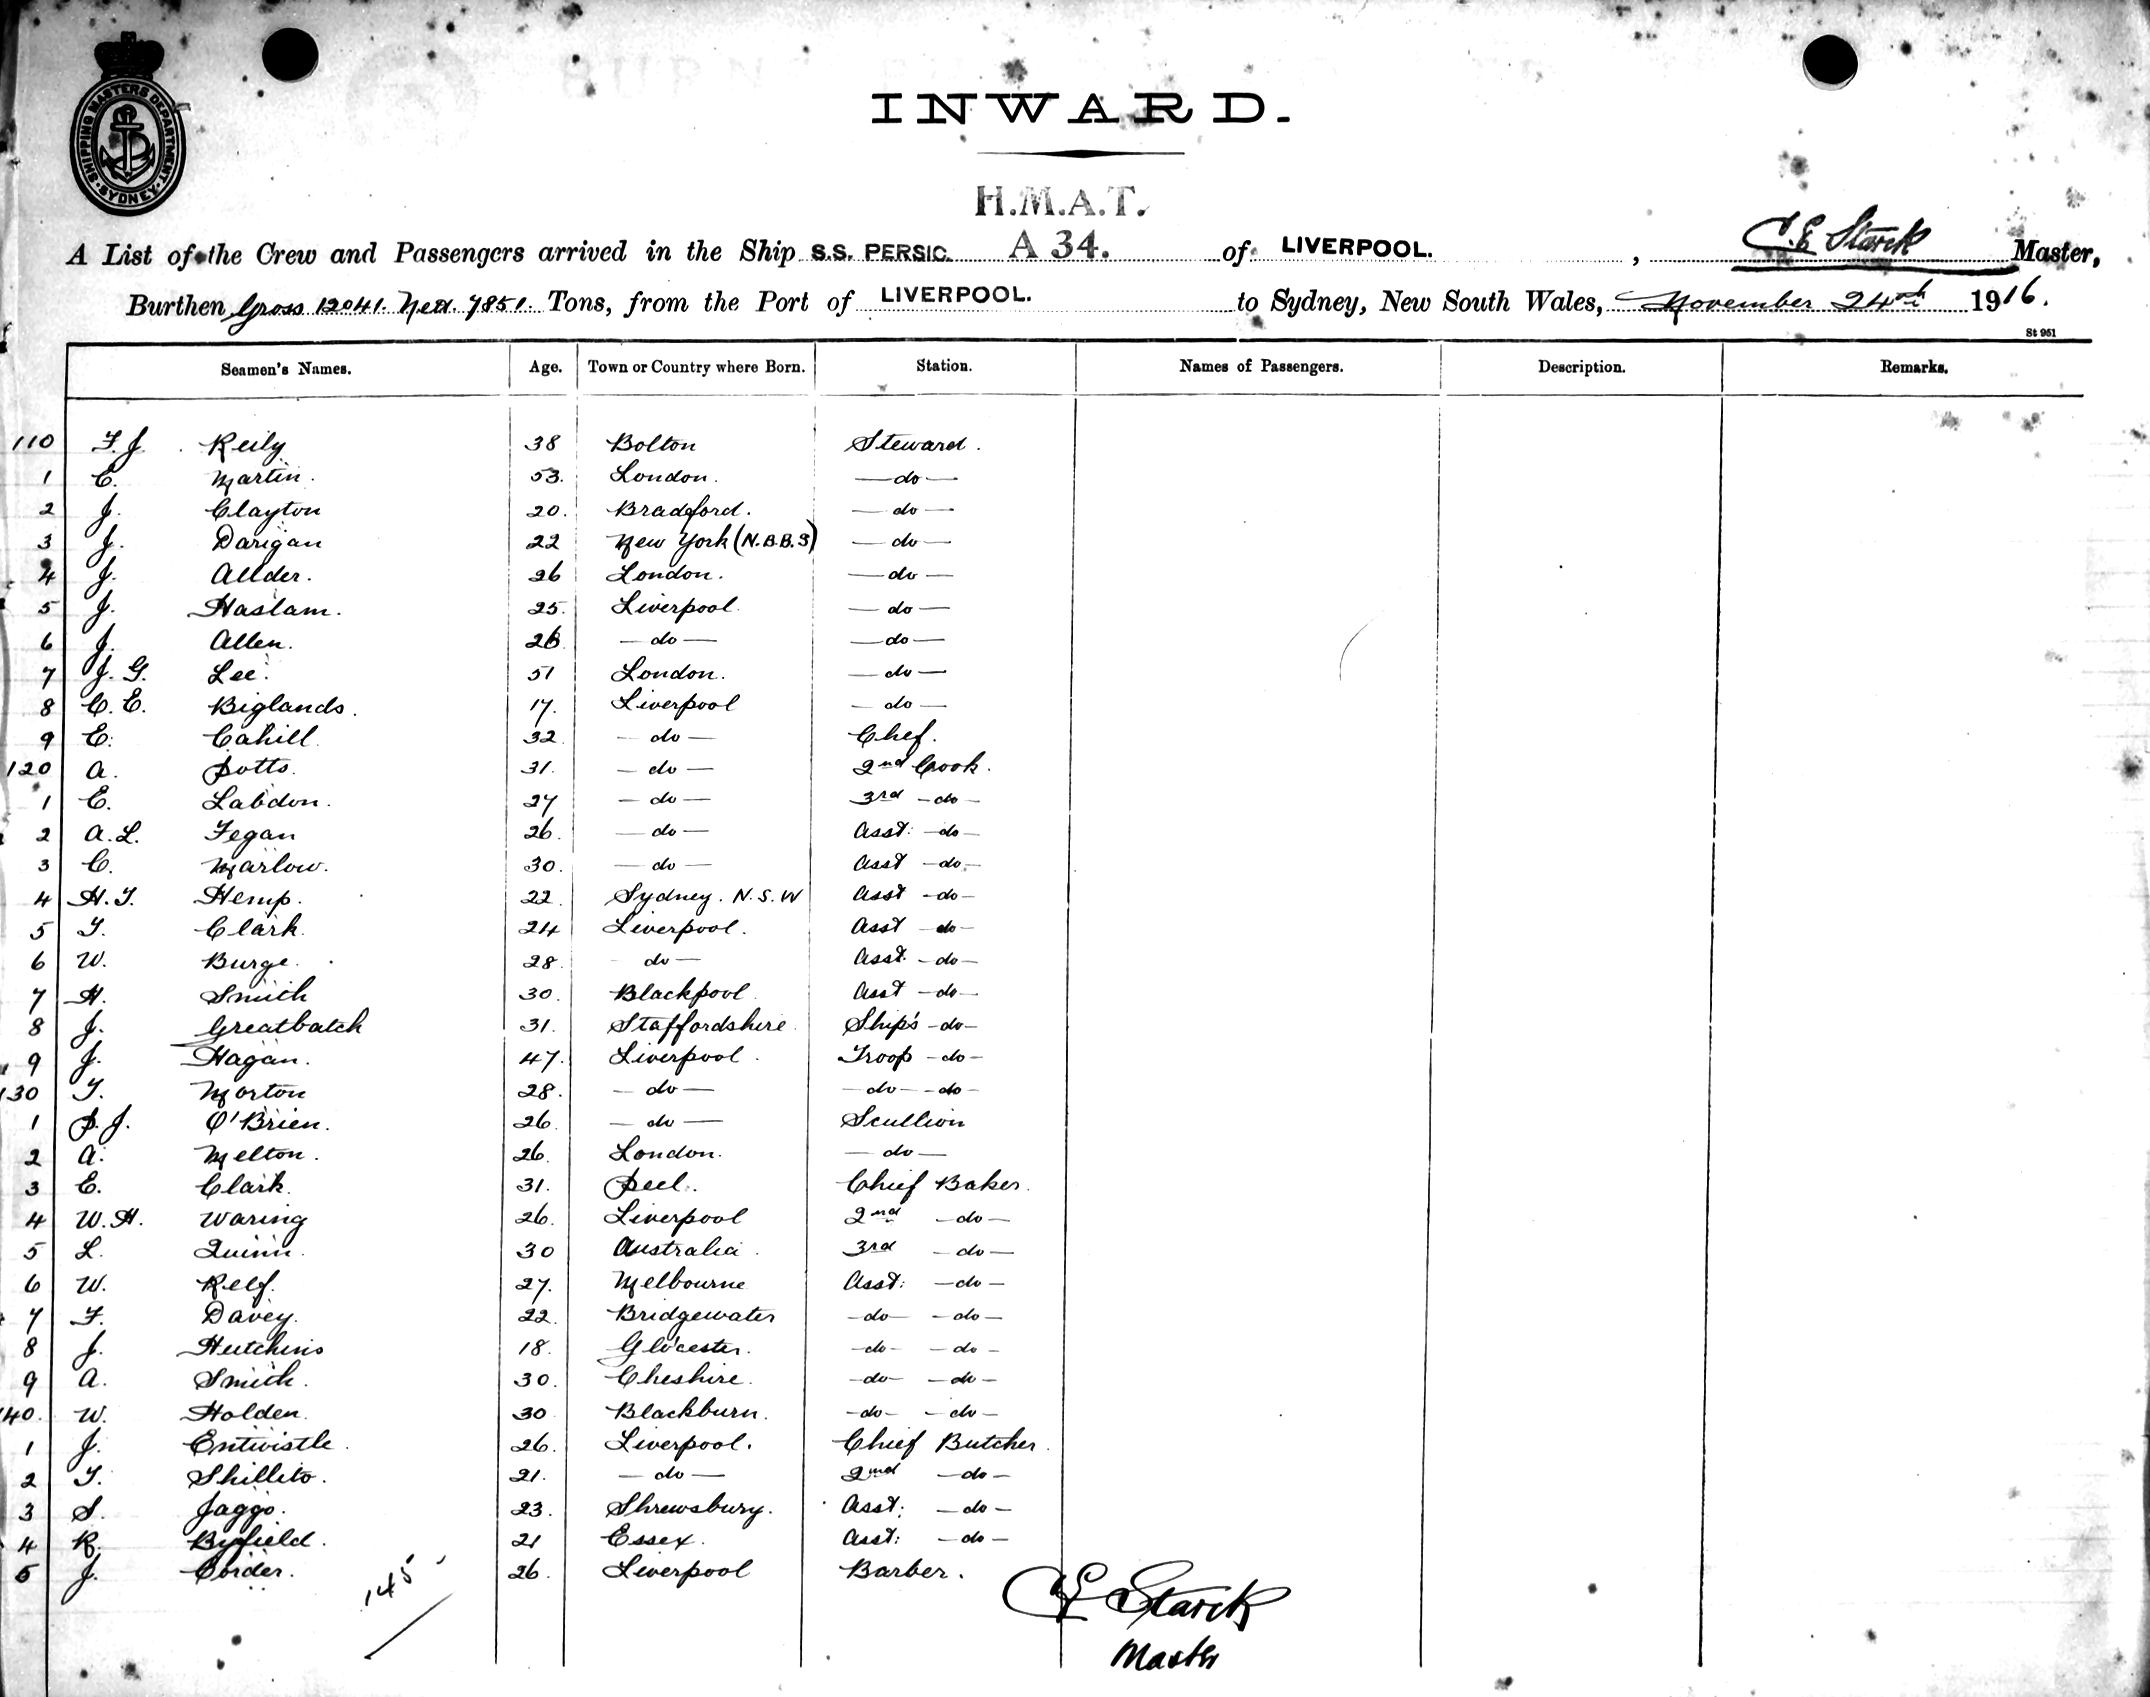 SHIPPING MASTERS DEPARTMENT. SYDNEY.
INWARD.
H.M.A.T.
A List of the Crew and Passengers arrived in the Ship S.S. PERSIC. A 34. of LIVERPOOL. , C. E Starck Master,
Burthen Gross 12041. Nett. 7851. Tons, from the Port of LIVERPOOL. to Sydney, New South Wales, November 24th 1916.
St 951
Seamen's Names. Age. Town or Country where Born. Station. Names of Passengers. Description. Remarks.
110 F. J. Reily 38 Bolton Steward.
1 C. Martin. 53. London. — do —
2 J. Clayton 20. Bradford. — do —
3 J. Darigan 22 New York (N.B.B.S) — do —
4 J. Allder. 26 London. — do —
5 J. Haslam. 25. Liverpool. — do —
6 J. Allen. — do — — do —
7 J. G. Lee. 51 London. — do —
8 C. E. Biglands. 17. Liverpool — do —
9 E. Cahill. 32. — do — Chef.
120 A. Potts. 31. — do — 2nd Cook.
1 E. Labdon. 27 — do — 3rd — do —
2 A. L. Fegan 26. — do — Asst: — do —
3 C. Marlow. 30. — do — Asst — do —
4 H. T. Hemp. 22. Sydney. N. S. W Asst — do —
5 T. Clark. 24 Liverpool. Asst — do —
6 W. Burge. 28. do — Asst. — do —
7 H. Smith 30. Blackpool. Asst — do —
8 J. Greatbatch 31. Staffordshire. Ship's — do —
9 J. Hagan. 47. Liverpool. Troop — do —
130 T. Morton 28. — do — — do — — do —
1 P. J. O'Brien. 26. — do — Scullion
2 A. Melton. 26. London. — do —
3 E. Clark. 31. Peel. Chief Baker.
4 W. H. Waring 26. Liverpool 2nd — do —
5 L. Quinn. 30 Australia. 3rd — do —
6 W. Relf. 27. Melbourne Asst: — do —
7 F. Davey. 22. Bridgewater — do — — do —
8 J. Hutchins 18. Glo'cester. — do — — do —
9 A. Smith. 30. Cheshire. — do — — do —
140. W. Holden. 30 Blackburn. — do — — do —
1 J. Entwistle. 26. Liverpool. Chief Butcher.
2 T. Shillito. 21. — do — 2nd — do —
3 S. Jaggo. 23. Shrewsbury. Asst: — do —
4 R. Byfield. 21 Essex. Asst: — do —
5 J. Corder. 26. Liverpool Barber.
145
C E Starck
Master